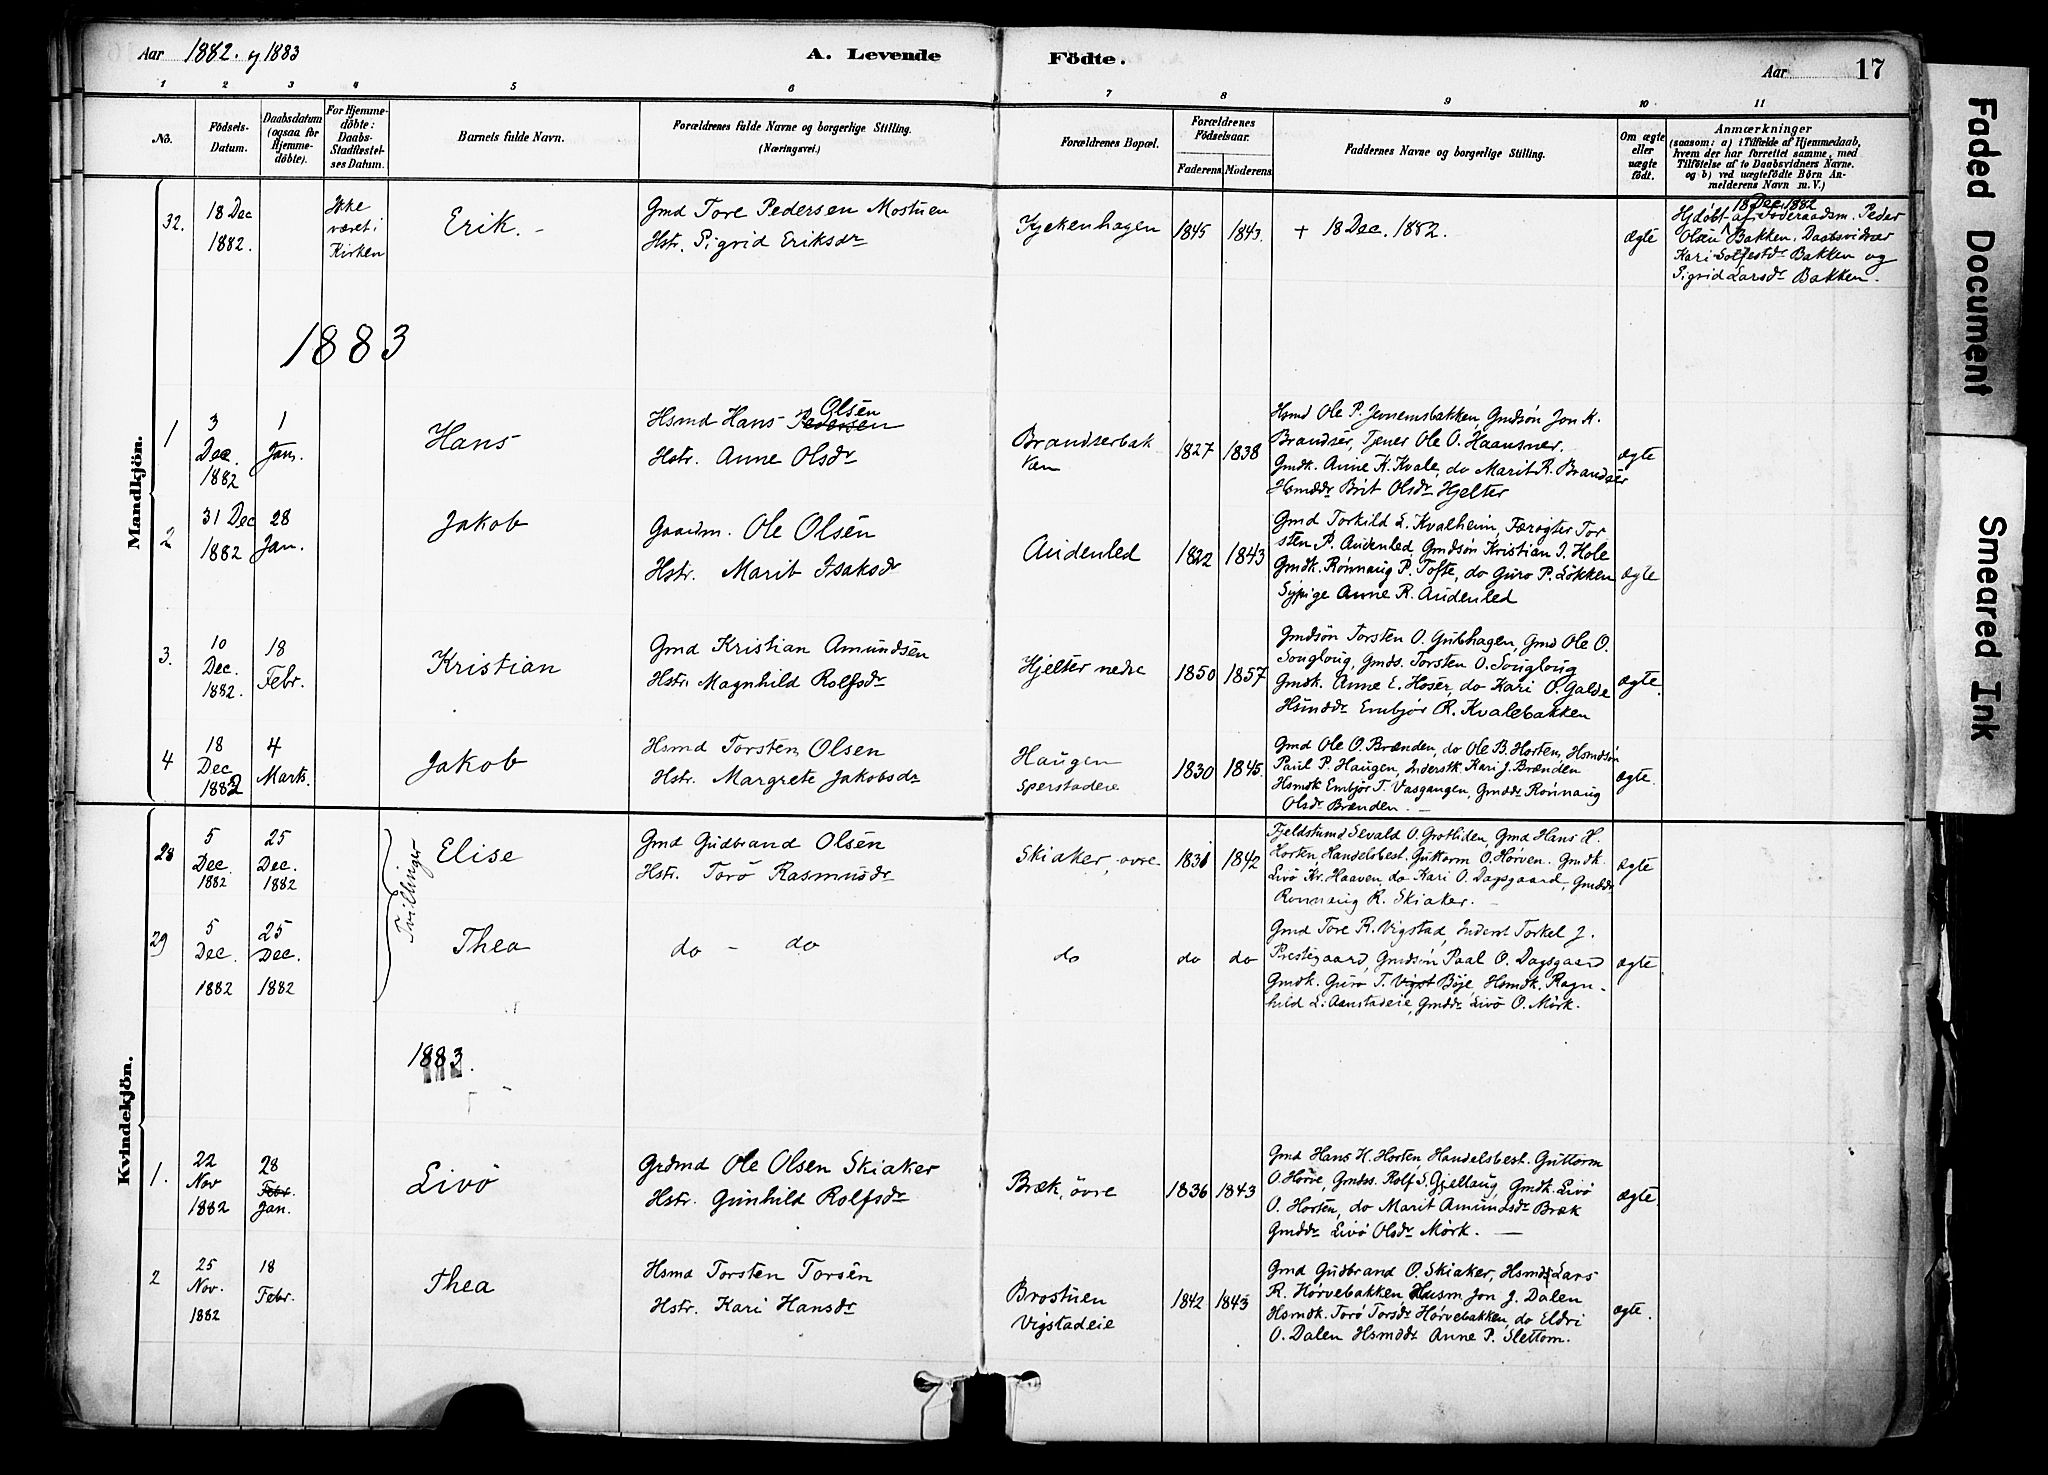 Aar 1882. og 1883
A. Levende Födte.
Aar 17
1 2 3 4 5 6 7 8 9 10 11
No.
Födsels-
Datum.
Daabsdatum
(ogsaa for
Hjemme-
döbte).
For Hjemme-
döbte:
Daabs-
Stadfæstel-
ses Datum.
Barnets fulde Navn.
Forældrenes fulde Navne og borgerlige Stilling.
(Næringsvei.)
Forældrenes Bopæl.
Forældrenes
Födselsaar.
Faderens. Moderens.
Faddernes Navne og borgerlige Stilling.
Om ægte
eller
uægte
født.
Anmærkninger
(saasom: a) i Tilfælde af Hjemmedaab,
hvem der har forrettet samme, med
Tilföielse af to Daabsvidners Navne.
og b) ved uægtefödte Börn An-
melderens Navn m. V.)
Mandkjön.
32.
18 Dec
1882.
Ikke
været i
Kirken
Erik. -
Gmd Tore Pedersen Mostuen
Hstr. Sigrid Eriksdr
Kjekenhagen
1845 1843.
+ 18 Dec. 1882.
Ægte
18 Dec. 1882
Hjdöbt af Föderaadsm. Peder
Olsen Bakken. Daabsvidner
Kari Solfestdr Bakken og
Sigrid Larsdr Bakken.
1883
1
3
Dec.
1882
1
Jan.
Hans
Olsen
Hsmd Hans Pedersen
Hstr. Anne Olsdr
Brandserbak
ken
1827 1838
Hsmd Ole P. Jennemsbakken, Gmdsön Jon K.
Brandsér, Tjener Ole O. Haansnær.
Gmdk. Anne K. Kvale, do Marit R. Brandsér
Hsmddr Brit Olsdr Hjelter
ægte
2
31 Dec
1882
28
Jan.
Jakob
Gaardm. Ole Olsén
Hstr. Marit Isaksdr
Audenled
1822 1843
Gmd Torkild L. Kvalheim, Færøgter Tor
sten P. Audenled, Gmdsön Kristian I. Hole
Gmdk. Rönnaug P. Tofte, do Guro P. Lökken
Sypige Anne R. Audenled
ægte
3.
10
Dec.
1882.
18
Febr.
Kristian
Gmd Kristian Amundsén
Hstr. Magnhild Rolfsdr
Hjelter nedre
1850 1857
Gmdsön Torsten O. Gubhagen, Gmd Ole O.
Songloug, Gmds. Torsten O. Songloug
Gmdk. Anne E. Hosér, do Kari O. Galde
Hsmddr Embjör R. Kvalebakken
ægte.
4
18
Dec
1882
4
Marts.
Jakob
Hsmd Torsten Olsen
Hstr. Margrete Jakobsdr
Haugen
Sperstadeie
1830 1845.
Gmd Ole O. Brænden, do Ole B. Horten, Hsmdsön
Paul P. Haugen, Inderstk. Kari J. Brænden
Hsmdk Embjör T. Vasgangen, Gmddr Rönnaug
Olsdr Brænden. -
ægte.
Kvindekjön.
28
5
Dec.
1882
25
Dec.
1882
Tvillinger
Elise
Gmd Gudbrand Olsén
Hstr. Torö Rasmusdr
Skiaker, övre
1831 1842
Fjeldstumd Sevald O. Grotliden, Gmd Hans H.
Horten, Handelsbest. Guttorm O. Hörven. Gmdk.
Livö Kr. Haaven, do Kari O. Dagsgaard, Gmddr
Rönnaug R. Skiaker. -
ægte
29
5
Dec.
1882
25
Dec.
1882
Thea
do - do
do
do do
Gmd Tore R. Vigstad, Inderst Torkel J.
Prestegaard, Gmdsön Paal O. Dagsgaard
Gmdk. Guro T. Vigst Böje, Hsmdk. Ragn-
hild L. Aanstadeie, Gmddr Livö O. Mörk.
ægte
1883.
1.
22
Nov
1882
28
Febr.
Jan.
Livö
Grdmd Ole Olsen Skiaker
Hstr. Gunhild Rolfsdr
Bræk, övre
1836 1843
Gmd Hans H. Horten, Handelsbest. Guttorm
O. Hörve, Gmdss. Rolf S. Gjellaug, Gmdk. Livö
O. Horten, do Marit Amundsdr Bræk
Gmddr Livö Olsdr Mörk. -
ægte.
2
25
Nov.
1882
18
Febr.
Thea
Hsmd Torsten Torsén
Hstr. Kari Hansdr
Brostuen
Vigstadeie
1842 1843
Gmd Gudbrand O. Skiaker, Hsmd Lars
R. Hörvebakken Husm Jon J. Dalen
Hsmdk. Torö Torsdr Hörvebakken, do Eldri
O. Dalen Hsmddr Anne P. Slettom.
ægte.
Faded Document
Smeared Ink